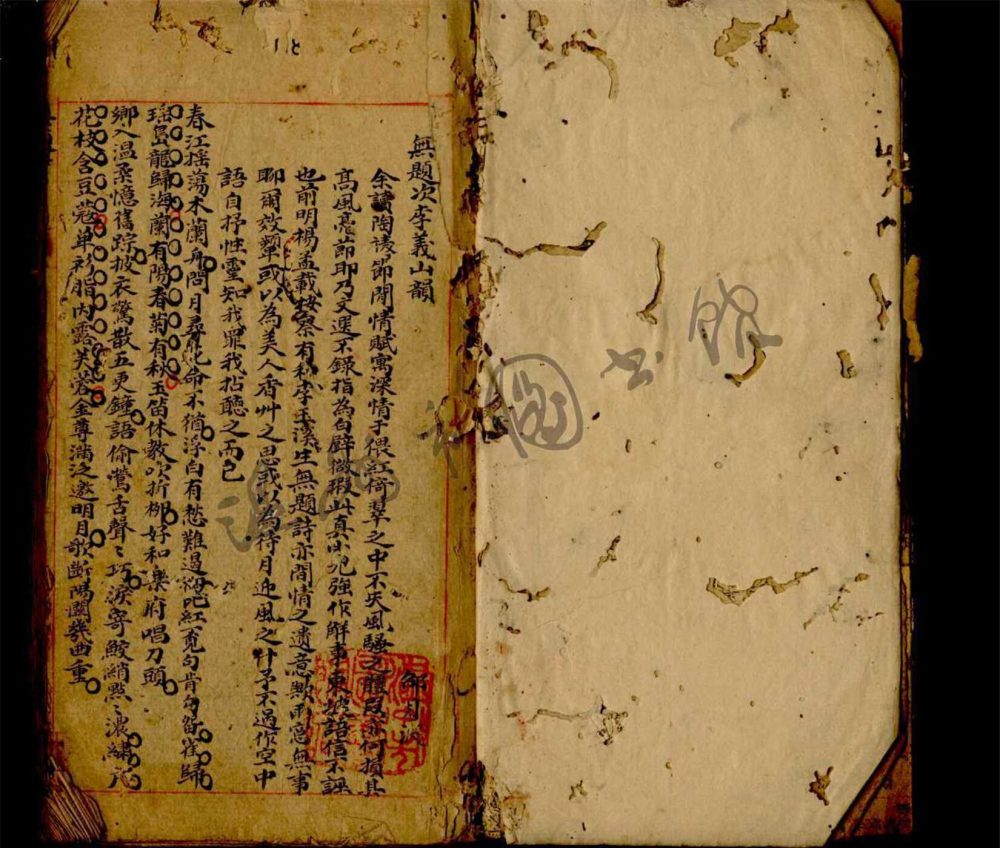 無題次李義山韻
余讀陶靖節閒情賦寓深情于偎紅倚翠之中不失風騷之體何損其
高風亮節耶乃文選不錄指為白璧微瑕此真小兒強作解事東坡語信不誣
也前明楊孟載按察有和李玉溪生無題詩亦閒情之遺意歟雨窗無事
聊爾效顰或以為美人香艸之思或以為待月迎風之什予不過作空中
語自抒性靈知我罪我拈聽之而已
春江搖蕩木蘭舟問月尋花命不猶浮白有愁難過紅覓句肯勾留崔歸
瑤島龍歸海蘭有陽春菊有秋玉笛休教吹折柳好和樂府唱刀頭
鄉入溫柔憶舊踪披衣驚散五更鐘語偷鶯舌聲〻巧淚寄鮫綃點〻濃繡
花枝含豆蔻單衫脂肉露芙蓉金尊滿泛邀明月歌斷陽關幾曲重